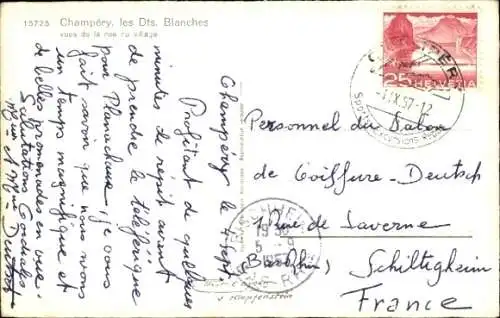 15725 Champéry, les Dts. Blanches
vues de la rue du village
Champéry le 4 Sept.
Profitant de quelques
minutes de répit avant
de prendre le téléférique
pour Planachaux, je vous
fait savoir que nous avons
un temps magnifique et
de belles promenades en vue.
Salutations Cordiales
Mr et Mme Deutsch
25 HELVETIA
CHAMPÉRY
-4.IX.57-12
Personnel du Salon
de Coiffure-Deutsch
1 Rue de Saverne
(Bas Rhin) Schiltigheim
France
5 -9
1957